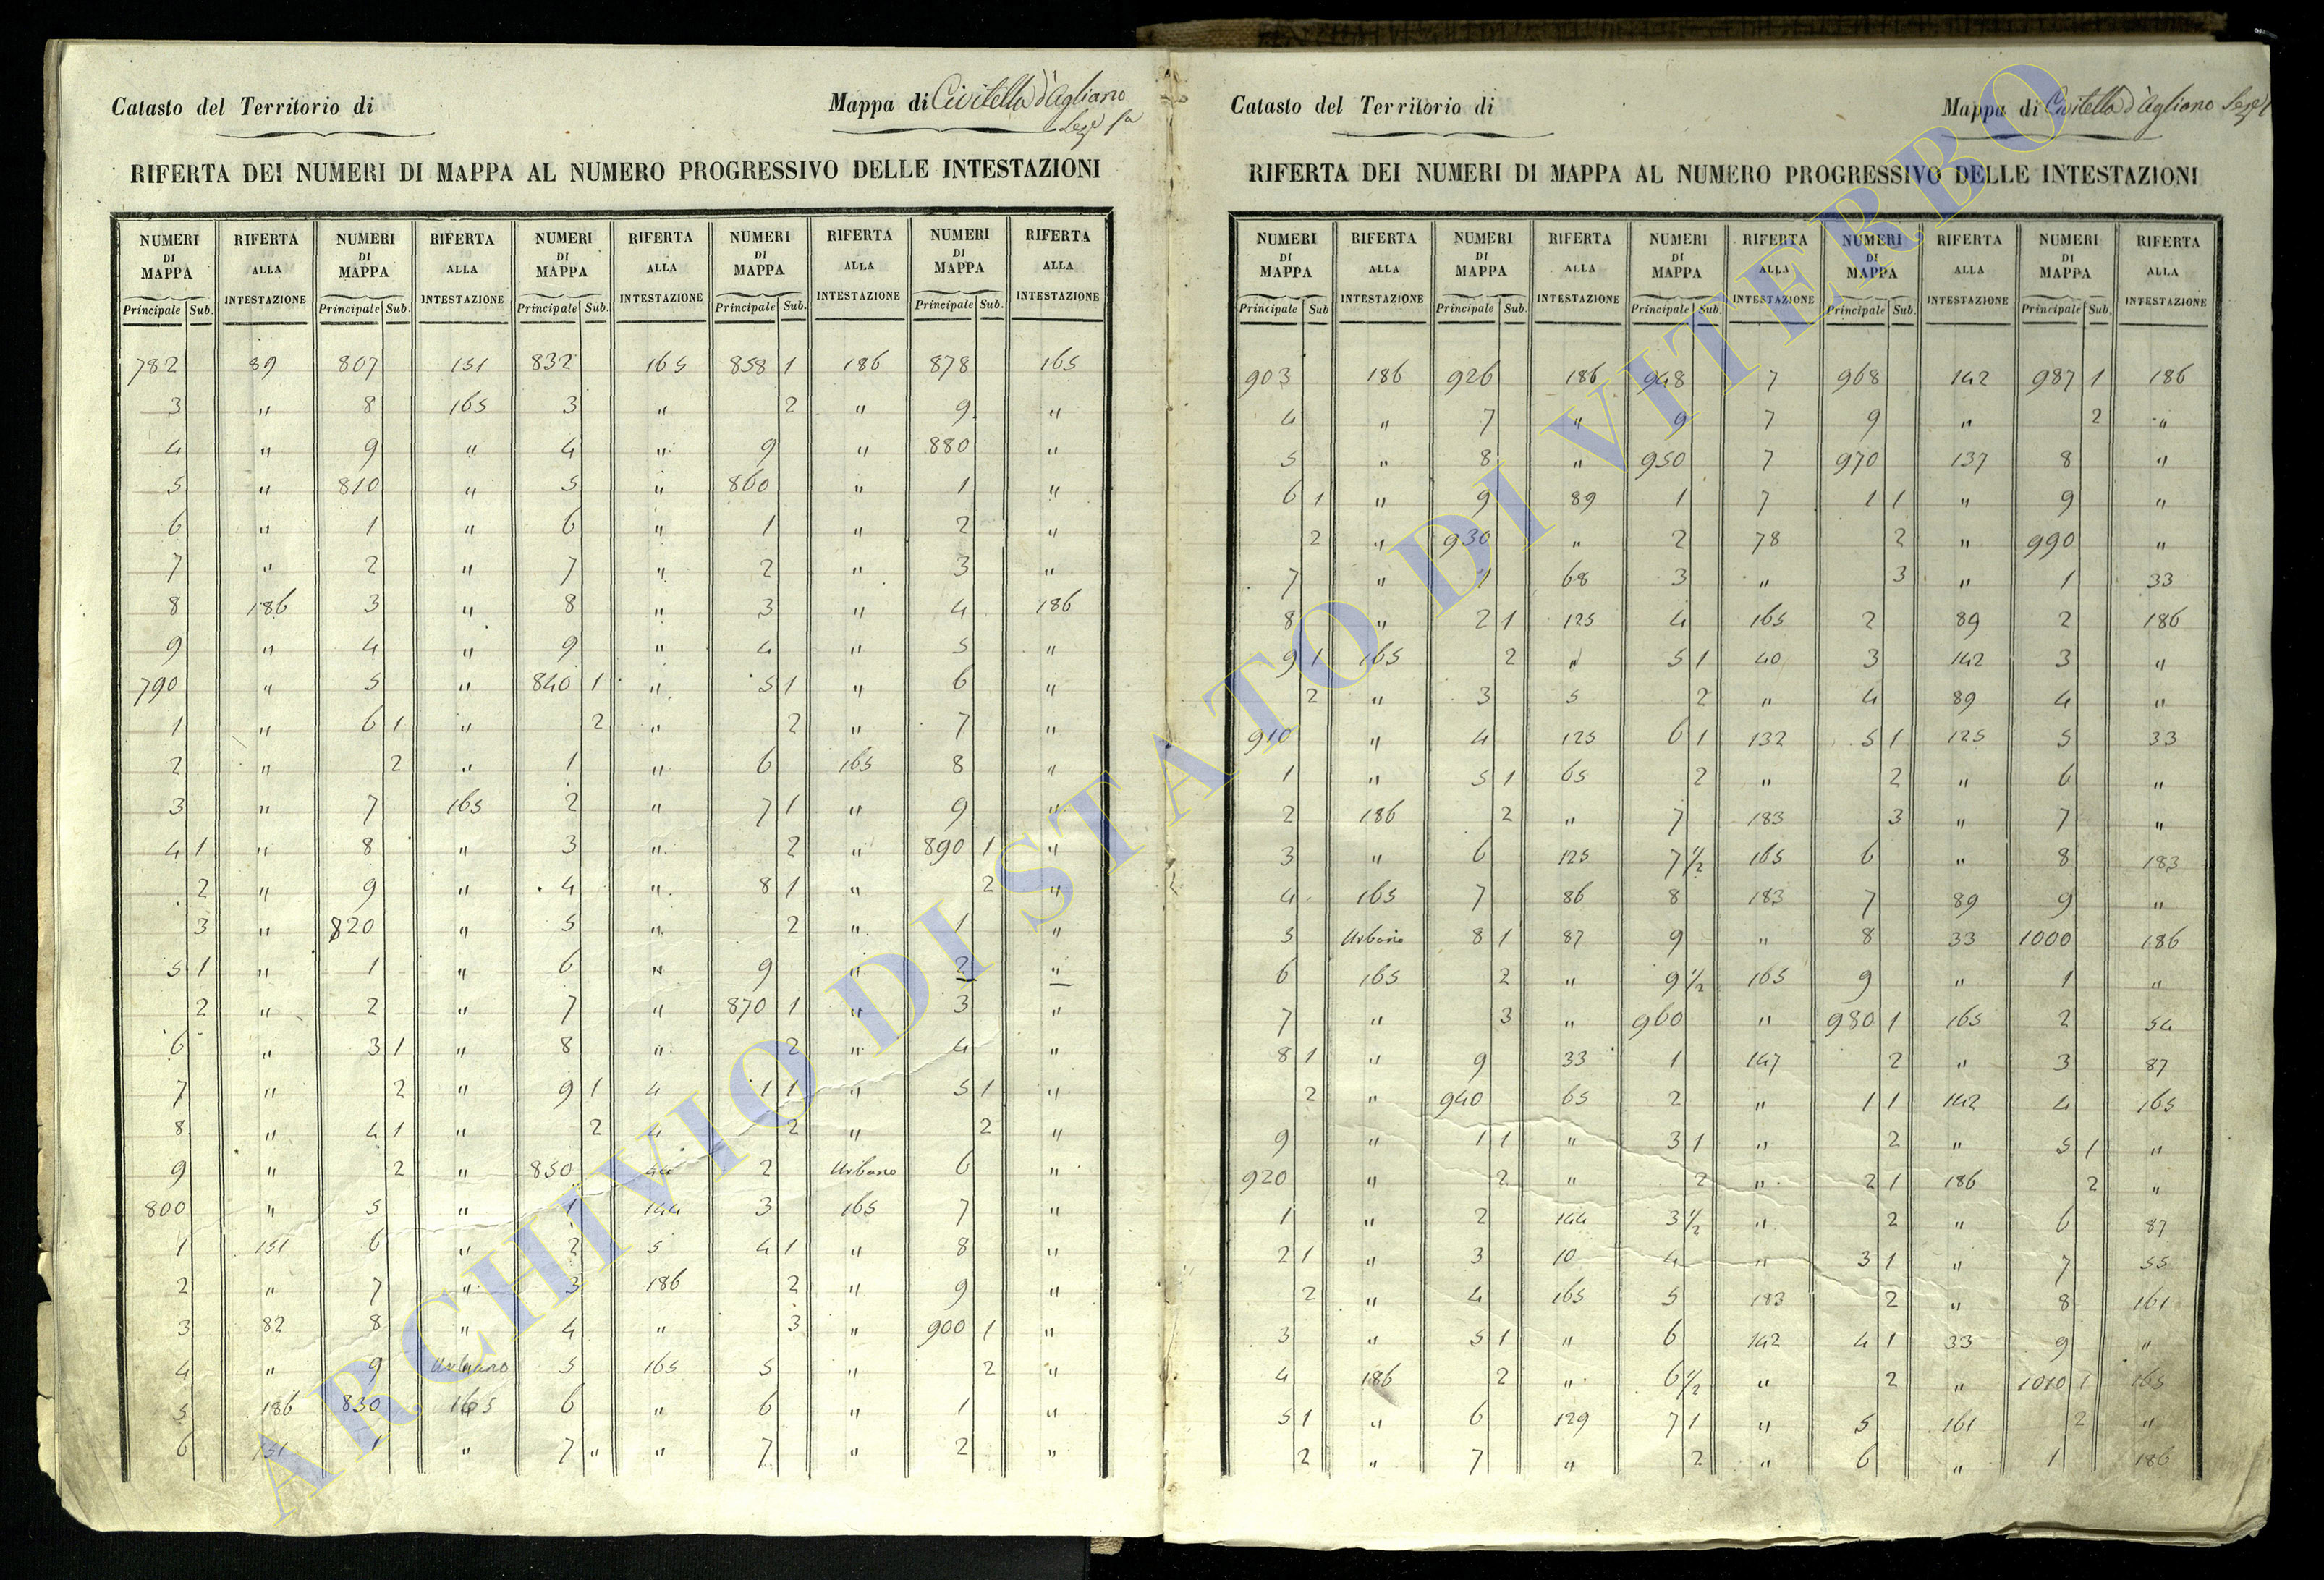 Catasto del Territorio di
Mappa di Civitella d'Agliano
Sez.e 1a
RIFERTA DEI NUMERI DI MAPPA AL NUMERO PROGRESSIVO DELLE INTESTAZIONI
NUMERI RIFERTA NUMERI RIFERTA NUMERI RIFERTA NUMERI RIFERTA NUMERI RIFERTA
DI DI DI DI DI
MAPPA ALLA MAPPA ALLA MAPPA ALLA MAPPA ALLA MAPPA ALLA
INTESTAZIONE INTESTAZIONE INTESTAZIONE INTESTAZIONE INTESTAZIONE
Principale Sub. Principale Sub. Principale Sub. Principale Sub. Principale Sub.
782 89 807 151 832 165 858 1 186 878 165
3 " 8 165 3 " 2 " 9 "
4 " 9 " 4 " 9 " 880 "
5 " 810 " 5 " 860 " 1 "
6 " 1 " 6 " 1 " 2 "
7 " 2 " 7 " 2 " 3 "
8 186 3 " 8 " 3 " 4 186
9 " 4 " 9 " 4 " 5 "
790 " 5 " 840 1 " 5 1 " 6 "
1 " 6 1 " 2 " 2 " 7 "
2 " 2 " 1 " 6 165 8 "
3 " 7 165 2 " 7 1 " 9 "
4 1 " 8 " 3 " 2 " 890 1 "
2 " 9 " 4 " 8 1 " 2 "
3 " 820 " 5 " 2 " 1 "
5 1 " 1 " 6 " 9 " 2 "
2 " 2 " 7 " 870 1 " 3 "
6 " 3 1 " 8 " 2 " 4 "
7 " 2 " 9 1 4 1 1 " 5 1 "
8 " 4 1 " 2 4 2 " 2 "
9 " 2 " 850 2 Urbano 6 "
800 " 5 " 1 144 3 165 7 "
1 151 6 " 2 5 4 1 " 8 "
2 " 7 " 3 186 2 " 9 "
3 82 8 " 4 " 3 " 900 1 "
4 " 9 Urbano 5 165 5 " 2 "
5 186 830 165 6 " 6 " 1 "
6 151 1 " 7 " " 7 " 2 "
Catasto del Territorio di
Mappa di Civitella d'Agliano Sez.e 1
RIFERTA DEI NUMERI DI MAPPA AL NUMERO PROGRESSIVO DELLE INTESTAZIONI
NUMERI RIFERTA NUMERI RIFERTA NUMERI RIFERTA NUMERI RIFERTA NUMERI RIFERTA
DI DI DI DI DI
MAPPA ALLA MAPPA ALLA MAPPA ALLA MAPPA ALLA MAPPA ALLA
INTESTAZIONE INTESTAZIONE INTESTAZIONE INTESTAZIONE INTESTAZIONE
Principale Sub Principale Sub. Principale Sub. Principale Sub. Principale Sub.
903 186 926 186 948 7 968 142 987 1 186
4 " 7 " 9 7 9 " 2 "
5 " 8 " 950 7 970 137 8 "
6 1 " 9 89 1 7 1 1 " 9 "
2 " 930 " 2 78 2 " 990 "
7 " 1 68 3 " 3 " 1 33
8 " 2 1 125 4 165 2 89 2 186
9 1 165 2 " 5 1 40 3 142 3 "
2 " 3 5 2 " 4 89 4 "
910 " 4 125 6 1 132 5 1 125 5 33
1 " 5 1 65 2 " 2 " 6 "
2 186 2 " 7 183 3 " 7 "
3 " 6 125 7 1/2 165 6 " 8 183
4 165 7 86 8 183 7 89 9 "
5 Urbano 8 1 87 9 " 8 33 1000 186
6 165 2 " 9 1/2 165 9 " 1 "
7 " 3 " 960 " 980 1 165 2 54
8 1 " 9 33 1 147 2 " 3 87
2 " 940 65 2 " 1 1 142 4 165
9 " 1 1 " 3 1 " 2 " 5 1 "
920 " 2 " 2 " 2 1 186 2 "
1 " 2 144 3 1/2 " 2 " 6 87
2 1 " 3 10 4 " 3 1 " 7 55
2 " 4 165 5 183 2 " 8 161
3 " 5 1 " 6 142 4 1 33 9 "
4 186 2 " 6 1/2 " 2 " 1010 1 165
5 1 " 6 129 7 1 " 5 161 2 "
2 " 7 " 2 " 6 " 1 186
ARCHIVIO DI STATO DI VITERBO